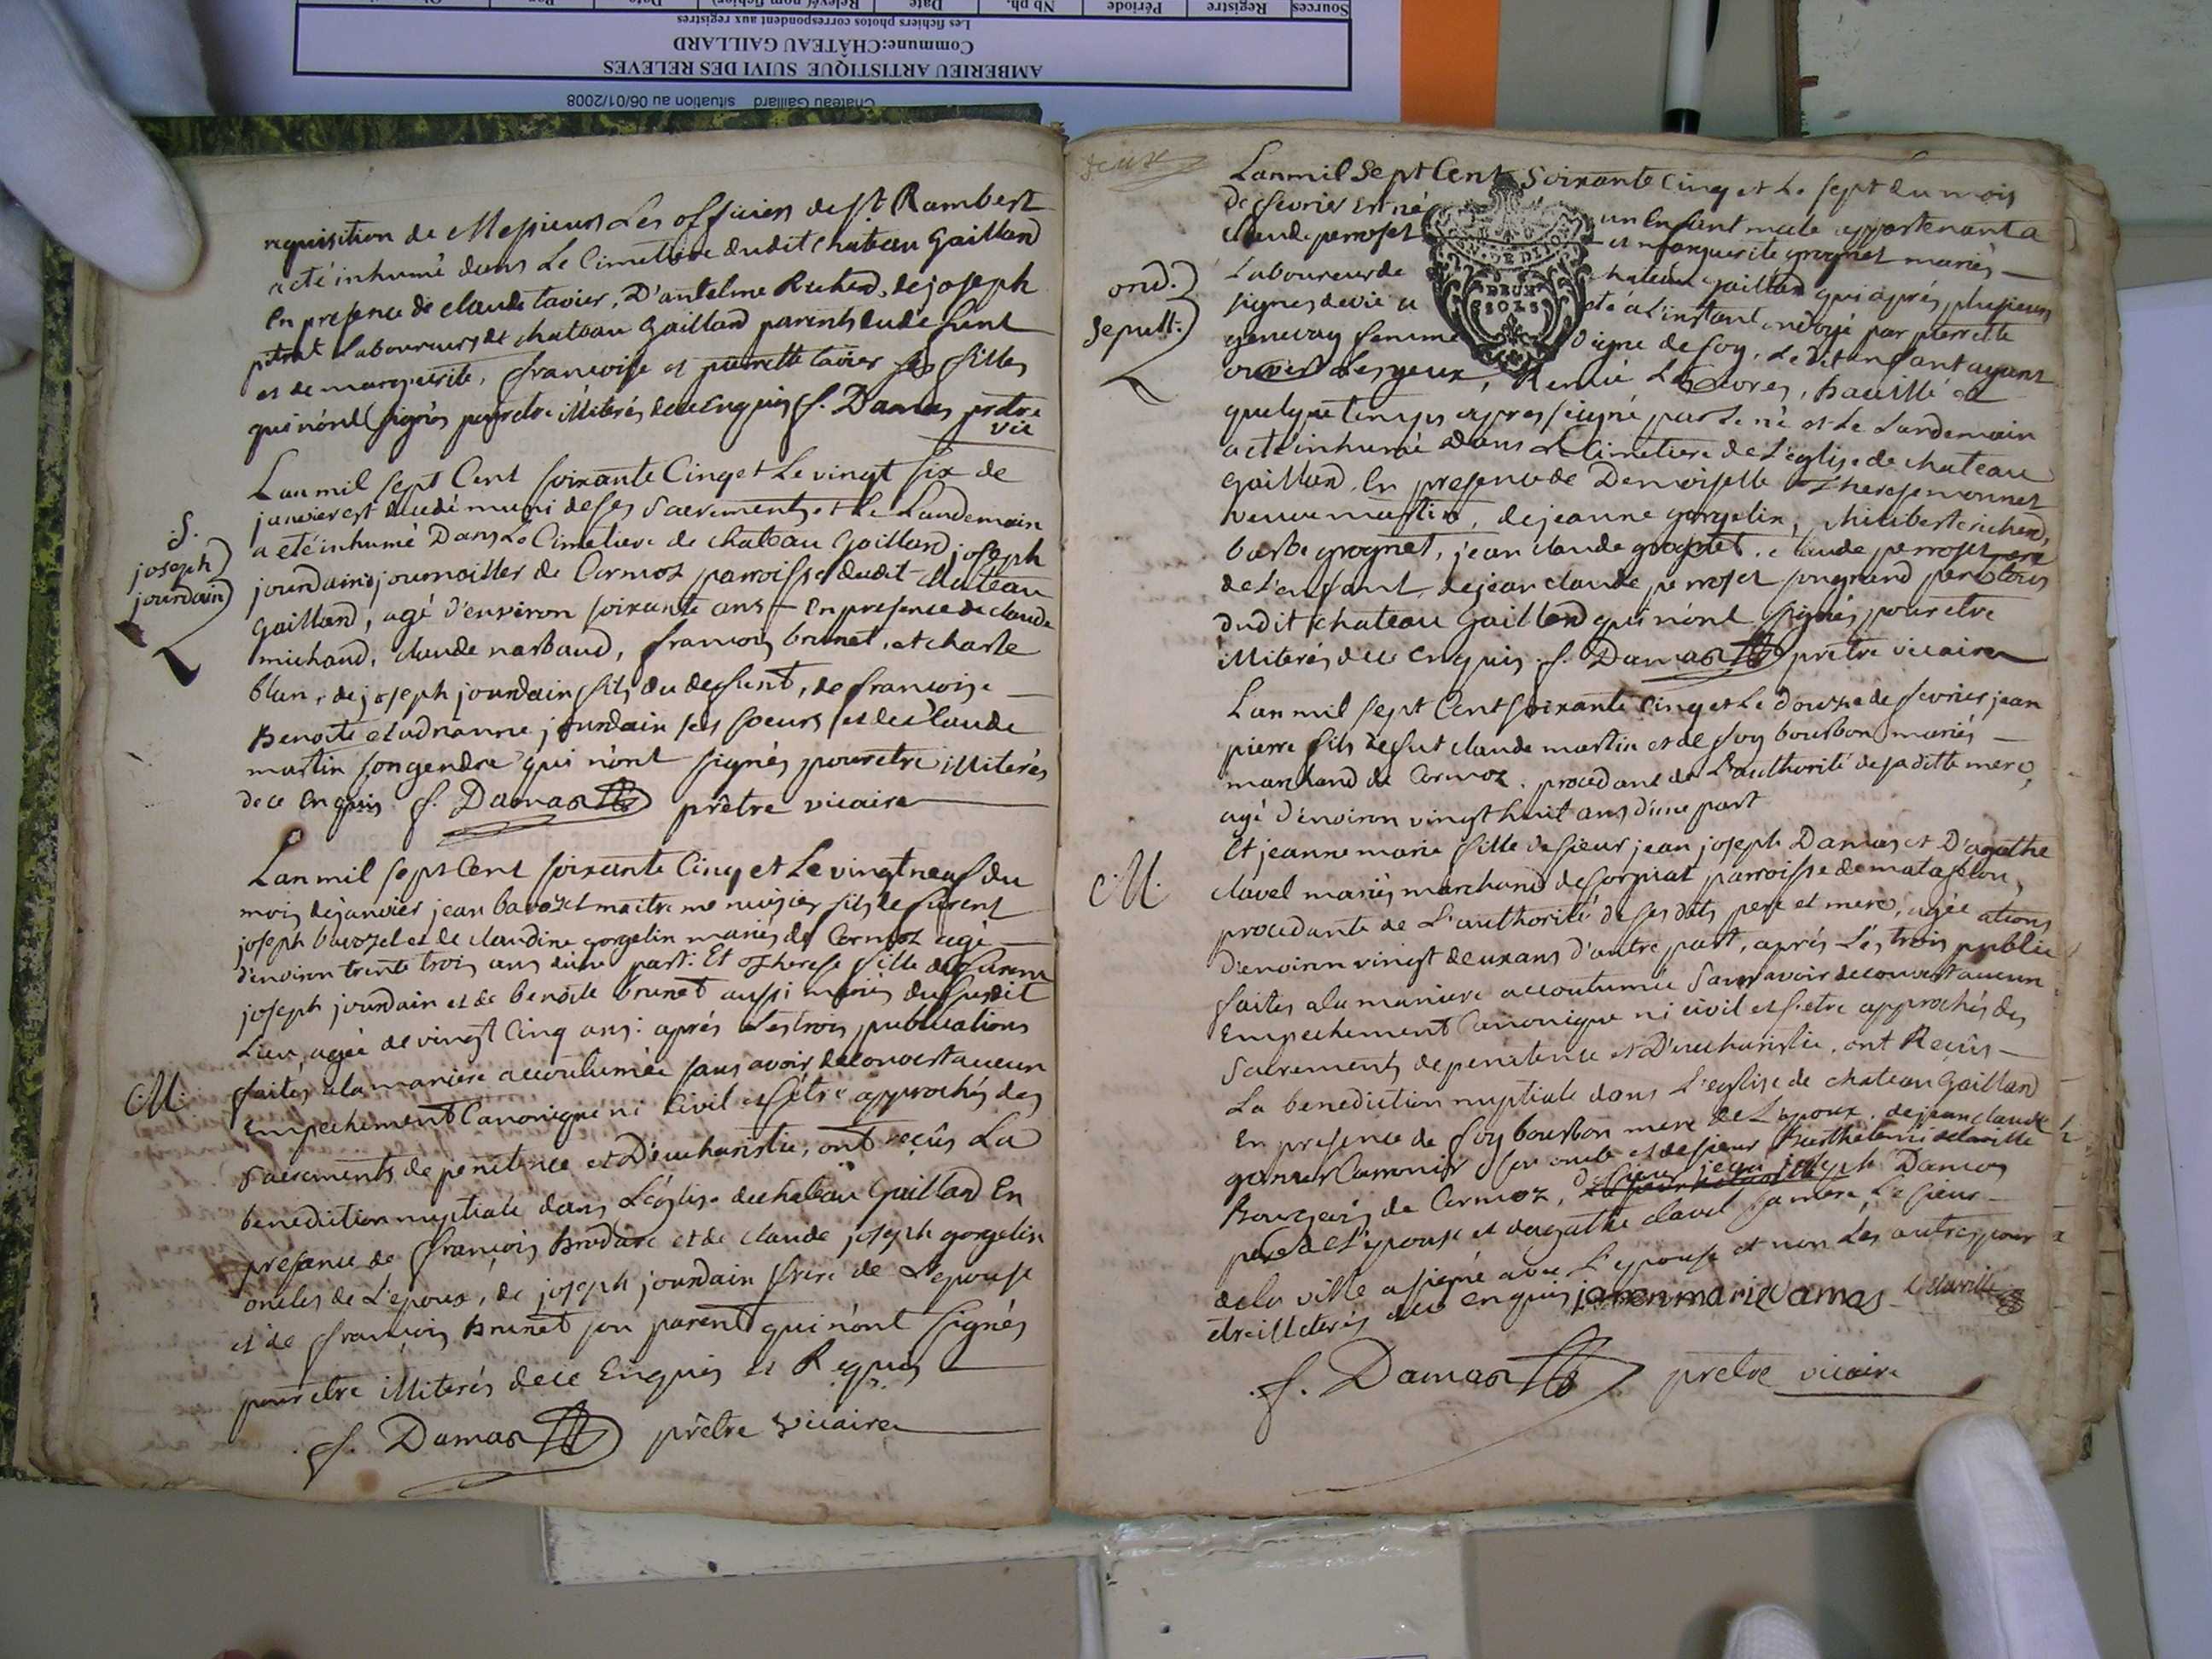 Château Gaillard situation au 06/01/2008
AMBERIEU ARTISTIQUE SUIVI DES RELEVES
Commune:CHÂTEAU GAILLARD
Les fichiers photos correspondent aux registres
Sources Registre Période Nb ph. Date
requisition de Messieurs Les officiers de St Rambert
a eté inhumé dans Le Cimetiere dudit chateau Gaillard
En presence de claude tavier, D'antelme Richerd, de joseph
pitrat Laboureurs de chateau Gaillard parents du defunt
et de marguerite, francoise et pierrette tavier ses filles
qui n'ont signés pour etre illiterés de ce Enquis f. Damas prêtre
vic
S.
joseph
jourdain
Lan mil sept Cent soixante Cinq et Le vingt six de
janvier est decedé muni de ses Sacrements et Le Landemain
a eté inhumé Dans Le Cimetiere de chateau Gaillard joseph
jourdain journailler de Cormoz parroisse dudit chateau
Gaillard, agé d'environ soixante ans En presence de claude
michaud, claude narbaud, francois brunet, et charle
blan, de joseph jourdain fils du defunt, de francoise
Benoite et adrianne jourdain ses soeurs et de claude
martin son gendre qui n'ont signés pour etre illiterés
de ce Enquis f. Damas prêtre vicaire
M.
Lan mil sept Cent soixante Cinq et Le vingt neuf du
mois de janvier jean bavozet maitre menuisier fils de furent
joseph bavozet et de claudine gorgelin mariés de Cormoz agé
d'environ trente trois ans d'une part: Et Therese fille de furent
joseph jourdain et de benoite brunet aussi mariés du susdit
Lieu, agée de vingt Cinq ans: aprés Les trois publications
faites a la maniere accoutumée sans avoir decouvert aucun
Empechement Canonique ni Civil et s'etre approchés des
Sacrements de penitence et D'eucharistie, ont reçûs La
benediction nuptiale dans L'église de chateau Gaillard En
presence de françois Brodare et de claude joseph gorgelin
oncles de L'epoux, de joseph jourdain frere de L'epouse
et de françois Brunet son parent qui n'ont signés
pour etre illiterés de ce Enquis et Requis
f. Damas prêtre vicaire
deuxe
ond.
sepult.
Lan mil sept Cent Soixante Cinq et Le sept du mois
De fevrier Est né un Enfant male appartenant a
claude perroset et marguerite grognet mariés
Laboureur de chateau gaillard qui aprés plusieurs
signes de vie a eté a L'instant ondoyé par pierrette
genevay femme digne de foy, Ledit enfant ayant
ouvert Les yeux, Remué Les Levres, Baaillé et
quelque temps apres seigné par Le né et Le Landemain
a eté inhumé dans Le Cimetiere de L'eglise de chateau
Gaillard. En presence de Demoiselle Therese monnet
veuve martin, de jeanne gorgelin, philiberte richerd,
barbe grognet, jean claude grognet, claude perroset pere
de L'enfant, de jean claude perroset son grand pere tous
dudit chateau Gaillard qui n'ont signés pour etre
illiterés de ce Enquis f. Damas prêtre vicaire
M.
Lan mil sept Cent soixante Cinq et Le Douze de fevrier jean
pierre fils de fut claude martin et de foy bourbon mariés
marchand de Cormoz, procedant de L'authorité de sa ditte mere,
agé d'environ vingt huit ans d'une part
Et jeanne marie fille de sieur jean joseph Damas et D'agathe
clavel mariés marchand de Corniat parroisse de mataflon,
procedante de L'authorité de ses dits pere et mere, agée
d'environ vingt deux ans d'autre part, aprés Les trois publications
faites a la maniere accoutumée sans avoir decouvert aucun
Empechement Canonique ni civil et s'etre approchés des
Sacrements de penitence et D'eucharistie, ont Reçûs
La benediction nuptiale dans L'eglise de chateau Gaillard
En presence de foy bourbon mere de L'epoux, de jean claude
son oncle et de sieur Barthelemi delaville
Bourgeois de Cormoz, de sieur jean joseph Damas
pere de L'epouse et dagathe clavel sa mere, Le sieur
de la ville a signé avec L'epouse et non Les autres pour
etre illiterés de ce enquis janenmarie Damas Delaville
f. Damas prêtre vicaire
DEUX
SOLS